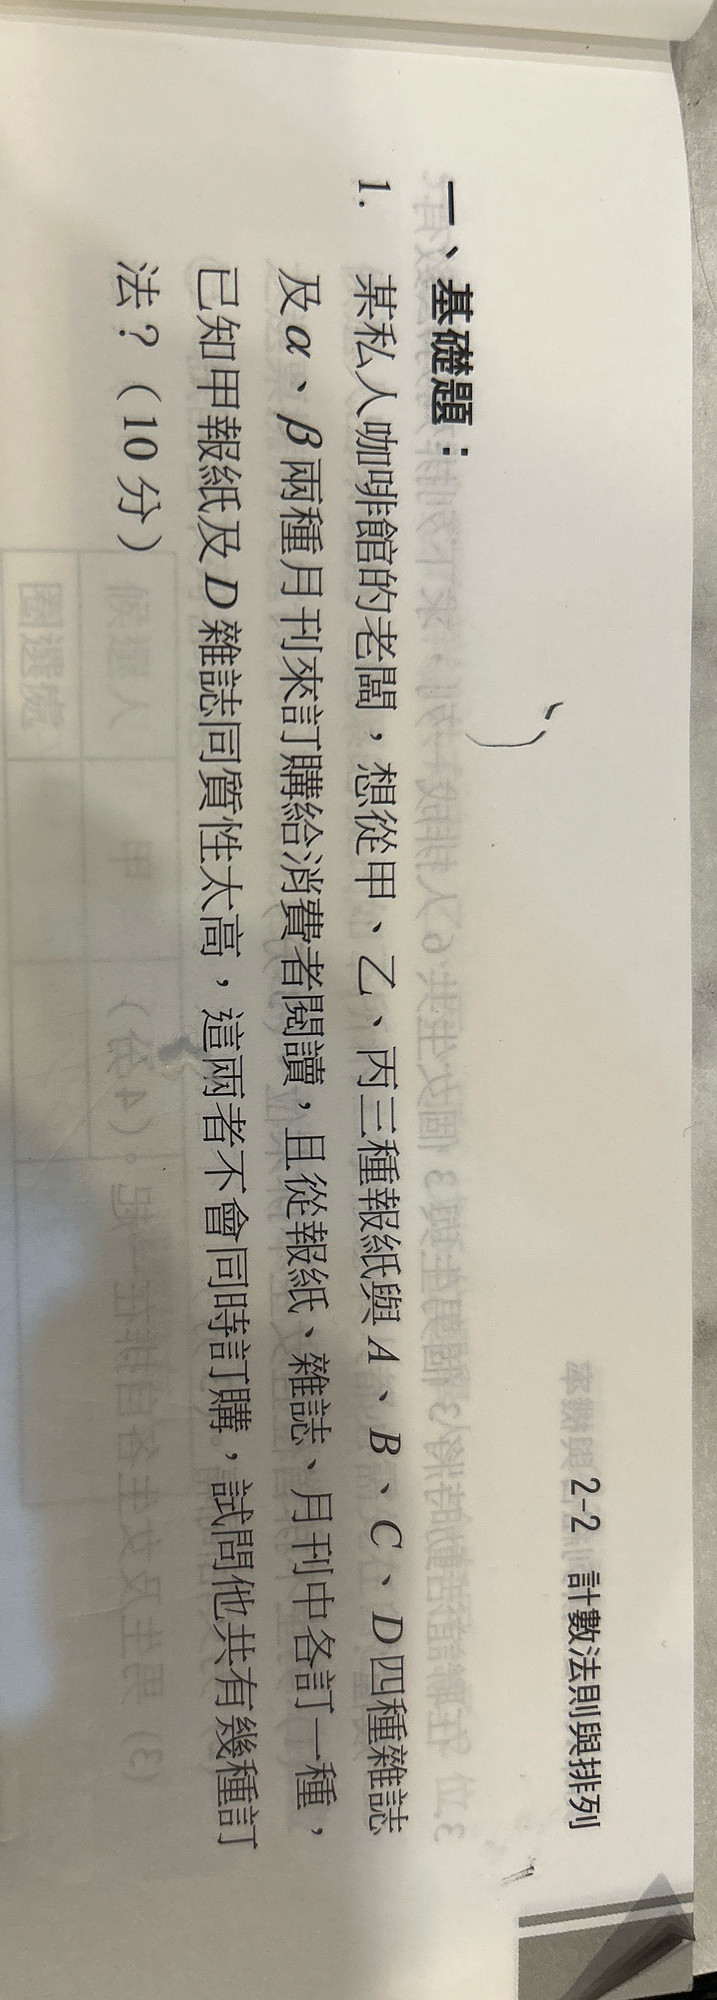 2-2 計數法則與排列
一、基礎題：
1. 某私人咖啡館的老闆，想從甲、乙、丙三種報紙與 A、B、C、D 四種雜誌
及 α、β 兩種月刊來訂購給消費者閱讀，且從報紙、雜誌、月刊中各訂一種，
已知甲報紙及 D 雜誌同質性太高，這兩者不會同時訂購，試問他共有幾種訂
法？（10 分）